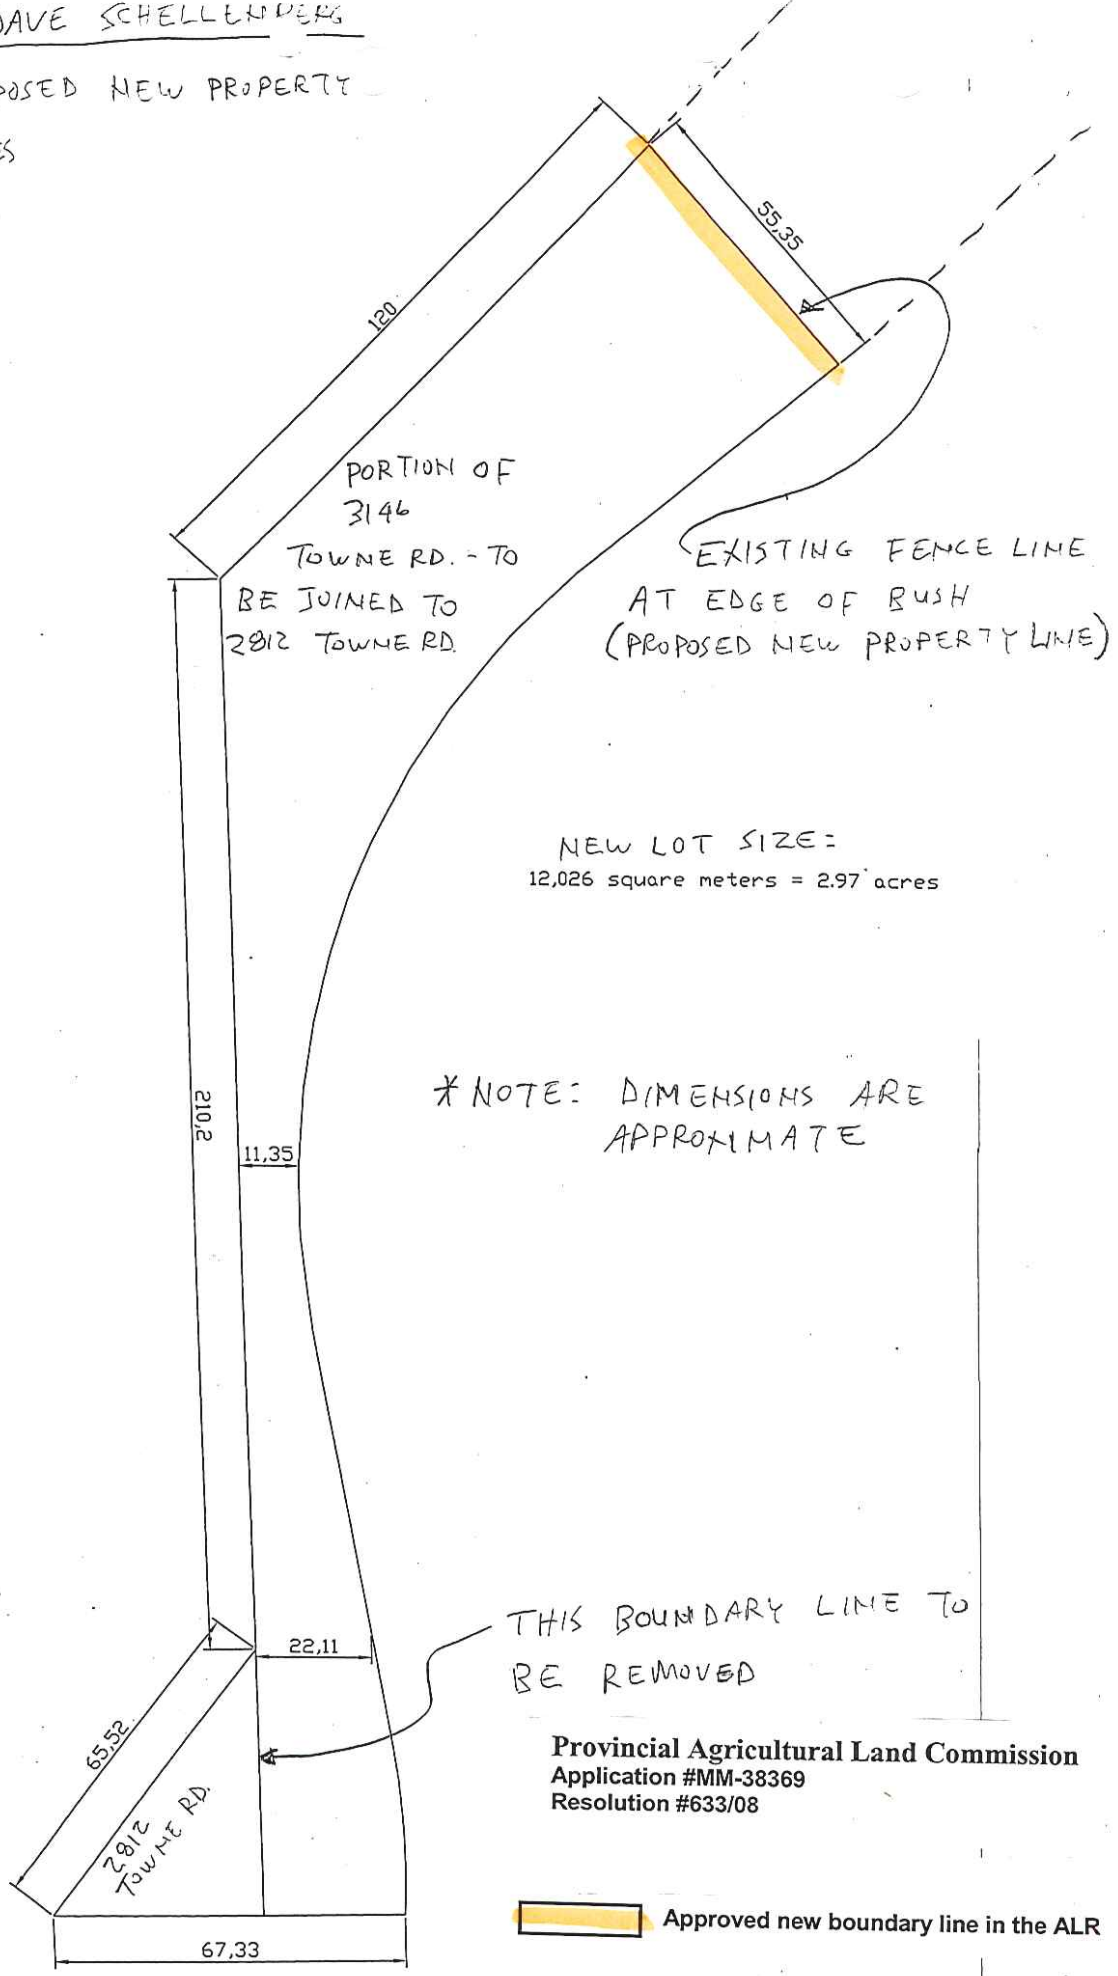 DAVE SCHELLENBERG
POSED NEW PROPERTY
ES
55,35
120
PORTION OF
3146
TOWNE RD. - TO
BE JOINED TO
2812 TOWNE RD.
EXISTING FENCE LINE
AT EDGE OF BUSH
(PROPOSED NEW PROPERTY LINE)
NEW LOT SIZE:
12,026 square meters = 2.97 acres
210,2
11,35
* NOTE: DIMENSIONS ARE
APPROXIMATE
THIS BOUNDARY LINE TO
BE REMOVED
22,11
65,52
2812
TOWNE RD.
67,33
Provincial Agricultural Land Commission
Application #MM-38369
Resolution #633/08
Approved new boundary line in the ALR